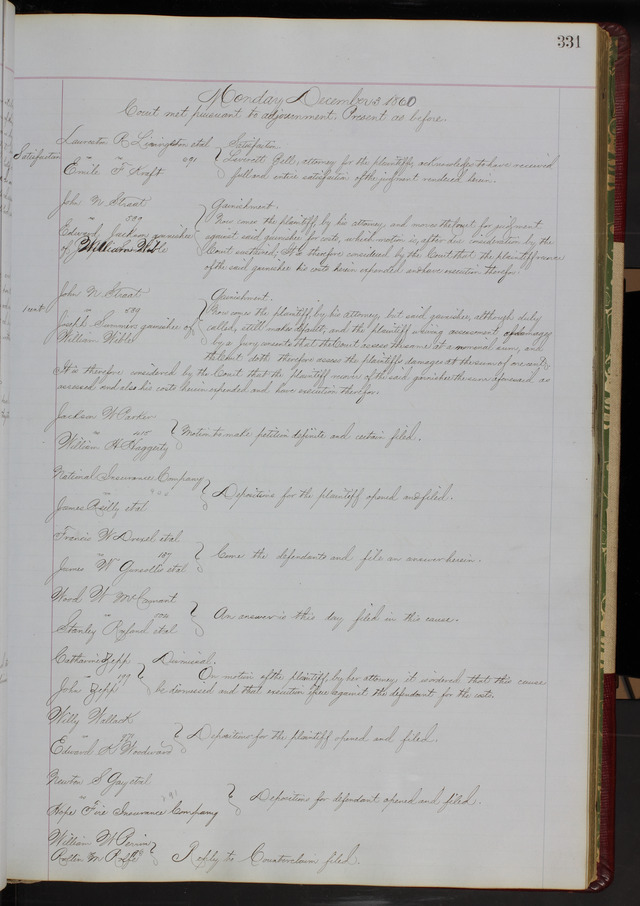 331
Monday December 3 1860
Court met pursuant to adjournment. Present as before.
Satisfaction
Lawreston R Livingston et al
vs 291
Emile F Kraft
Satisfaction
Leverett Bell, attorney for the plaintiffs, acknowledges to have received
full and entire satisfaction of the judgment rendered herein.
John N. Straat
vs 589
Edward Jackson garnishee
of William Weble
Garnishment.
Now comes the plaintiff by his attorney, and moves the Court for judgment
against said garnishee for costs, which motion is, after due consideration by the
Court sustained; It is therefore considered by the Court that the plaintiff recover
of the said garnishee his costs herein expended and have execution therefor.
1 cent
John N Straat
vs 589
Joseph Summers garnishee of
William Weble
Garnishment.
Now comes the plaintiff by his attorney, but said garnishee, although duly
called, still makes default, and the plaintiff waiving assessment of damages
by a Jury consents that the Court assess the same at a nominal sum, and
the Court doth therefore assess the plaintiffs damages at the sum of one cent.
It is therefore considered by the Court that the plaintiff recover of the said garnishee the same aforesaid as
assessed and also his costs herein expended and have execution therefor.
Jackson W Parker
vs
William H Haggerty
Motion to make petition definite and certain filed.
National Insurance Company
vs
James Reilly et al
Depositions for the plaintiff opened and filed.
Francis W Drexel et al
vs 187
James W et al
Come the defendants and file an answer herein.
Wood W
vs
Stanley et al
An answer is this day filed in this cause.
Catharine Zepp
vs 177
John Zepp
Dismissal.
On motion of the plaintiff by her attorney it is ordered that this cause
be dismissed and that execution issue against the defendant for the costs.
Willy Wallach
vs
Edward K. Woodward
Deposition for the plaintiff opened and filed.
Newton S Gay et al
vs 391
Hope Fire Insurance Company
Depositions for defendant opened and filed.
William W Perrin
Rollin M Rolfe
Reply to Counterclaim filed.